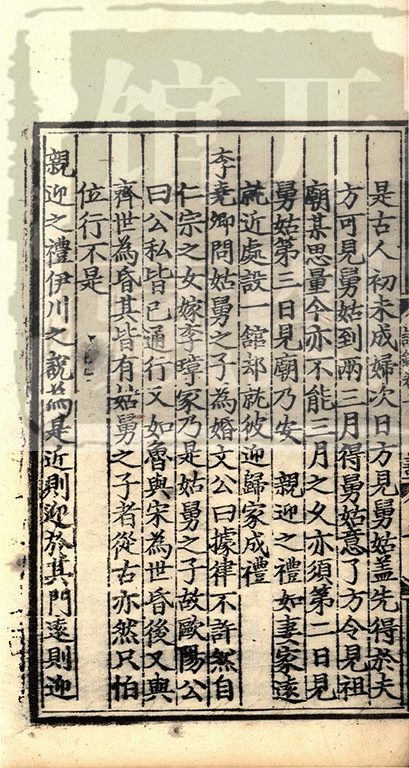 是古人初未成婦次日方見舅姑盖先得於夫
方可見舅姑到兩三月得舅姑意了方令見祖
廟某思量今亦不能三月之久亦須第二日見
舅姑第三日見廟乃安　親迎之禮如妻家遠
就近處設一館却就彼迎歸家成禮
李堯卿問姑舅之子為婚文公曰據律不許然自
仁宗之女嫁李璋家乃是姑舅之子故歐陽公
曰公私皆已通行又如魯與宋為世昏後又與
齊世為昏其皆有姑舅之子者從古亦然只怕
位行不是
親迎之禮伊川之說為是近則迎於其門遠則迎